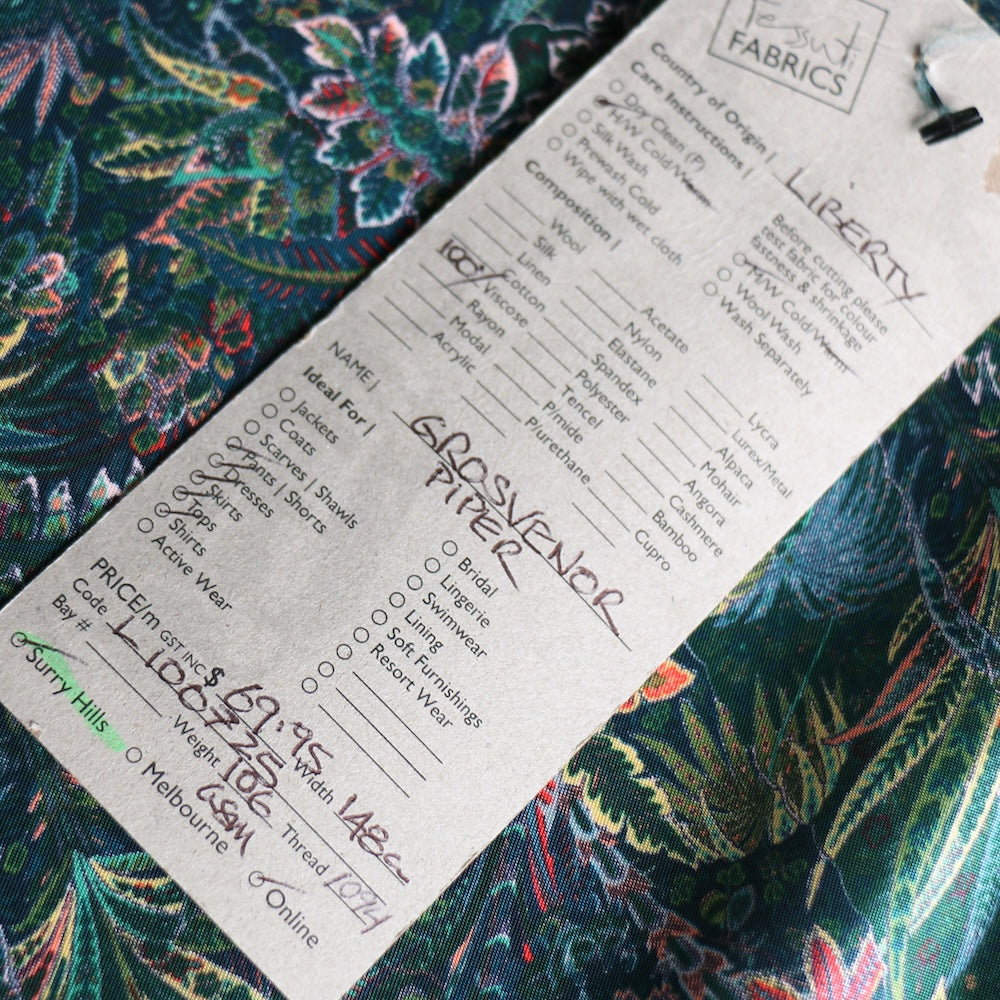 Tessuti
FABRICS
Country of Origin | LIBERTY
Care Instructions |
Dry Clean (P)
H/W Cold/Warm
Silk Wash
Prewash Cold
Wipe with wet cloth
Before cutting please
test fabric for colour
fastness & shrinkage
M/W Cold/Warm
Wool Wash
Wash Separately
Composition |
Wool
Silk
Linen
100% Cotton
Viscose
Rayon
Modal
Acrylic
Acetate
Nylon
Elastane
Spandex
Polyester
Tencel
P/mide
P/urethane
Lycra
Lurex/Metal
Alpaca
Mohair
Angora
Cashmere
Bamboo
Cupro
NAME | GROSVENOR
PIPER
Ideal For |
Jackets
Coats
Scarves | Shawls
Pants | Shorts
Dresses
Skirts
Tops
Shirts
Active Wear
Bridal
Lingerie
Swimwear
Lining
Soft Furnishings
Resort Wear
PRICE/m GST INC $ 69.95 Width 148c
Code L100725
Bay # Weight 106 GSM Thread 1094
Surry Hills
Melbourne
Online